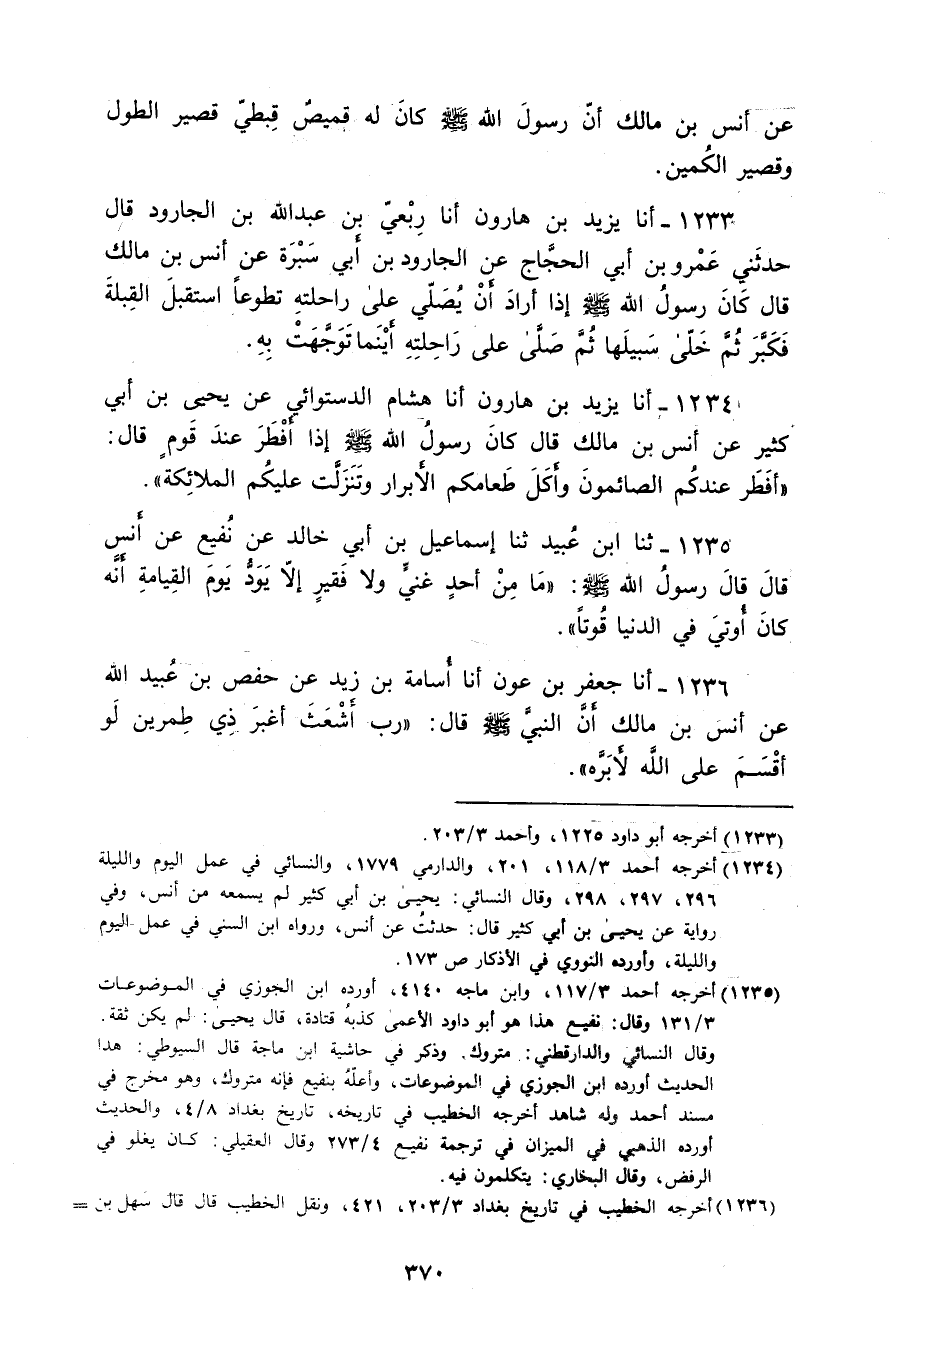 عن أنس بن مالك أنّ رسولَ الله ﷺ كانَ له قميصٌ قِبطيّ قصير الطول
وقصير الكُمين.
١٢٣٣ ـ أنا يزيد بن هارون أنا رِبْعيّ بن عبدالله بن الجارود قال
حدثَني عَمْرو بن أبي الحجَّاج عن الجارود بن أبي سَبْرَة عن أنس بن مالك
قال كَانَ رسولُ الله ﷺ إذا أرادَ أَنْ يُصَلّي علىٰ راحلتهِ تطوعاً استقبلَ القِبلةَ
فَكَبَّرَ ثُمَّ خَلّىٰ سَبيلَها ثُمَّ صَلَّىٰ على رَاحِلتِهِ أَيْنَما تَوَجَّهَتْ بِهِ.
١٢٣٤ ـ أنا يزيد بن هارون أنا هشام الدستوائي عن يحيى بن أبي
كثير عن أنس بن مالك قال كانَ رسولُ الله ﷺ إذا أَفْطَرَ عندَ قَومٍ قال:
«أفَطَر عندكُم الصائمونَ وأَكَلَ طَعامكم الأَبرار وتَنَزلَّت عليكُم الملائِكة».
١٢٣٥ ـ ثنا ابن عُبيد ثنا إسماعيل بن أبي خالد عن نُفيع عن أَنسٍ
قالَ قالَ رسولُ الله ﷺ: «مَا مِنْ أحدٍ غنيٍّ ولا فَقيرٍ إلّا يَوَدُّ يَومَ القِيامةِ أنَّه
كانَ أُوتيَ في الدنيا قُوتاً».
١٢٣٦ ـ أنا جعفر بن عون أنا أُسامة بن زيد عن حفص بن عُبيد الله
عن أنسَ بن مالك أَنَّ النبيَّ ﷺ قال: «رب أَشْعَثَ أغبرَ ذِي طِمرين لَو
أقْسَـمَ على اللَّه لأَبَرَّه».
(١٢٣٣) أخرجه أبو داود ١٢٢٥، وأحمد ٢٠٣/٣.
(١٢٣٤) أخرجه أحمد ١١٨/٣، ٢٠١، والدارمي ١٧٧٩، والنسائي في عمل اليوم والليلة
٢٩٦، ٢٩٧، ٢٩٨، وقال النسائي: يحيىٰ بن أبي كثير لم يسمعه من أنس، وفي
رواية عن يحيىٰ بن أبي كثير قال: حدثتُ عن أنس، ورواه ابن السني في عمل اليوم
والليلة، وأورده النووي في الأذكار ص ١٧٣.
(١٢٣٥) أخرجه أحمد ١١٧/٣، وابن ماجه ٤١٤٠، أورده ابن الجوزي في الموضوعات
١٣١/٣ وقال: نفيع هذا هو أبو داود الأعمىٰ كذبهُ قتادة، قال يحيىٰ: لم يكن ثقة.
وقال النسائي والدارقطني: متروك. وذكر في حاشية ابن ماجة قال السيوطي: هذا
الحديث أورده ابن الجوزي في الموضوعات، وأعلّهُ بنفيع فإنه متروك، وهو مخرج في
مسند أحمد وله شاهد أخرجه الخطيب في تاريخه، تاريخ بغداد ٤/٨، والحديث
أورده الذهبي في الميزان في ترجمة نفيع ٢٧٣/٤ وقال العقيلي: كـان يغلو في
الرفض، وقال البخاري: يتكلمون فيه.
(١٢٣٦) أخرجه الخطيب في تاريخ بغداد ٢٠٣/٣، ٤٢١، ونقل الخطيب قال قال سهل بن =
٣٧٠